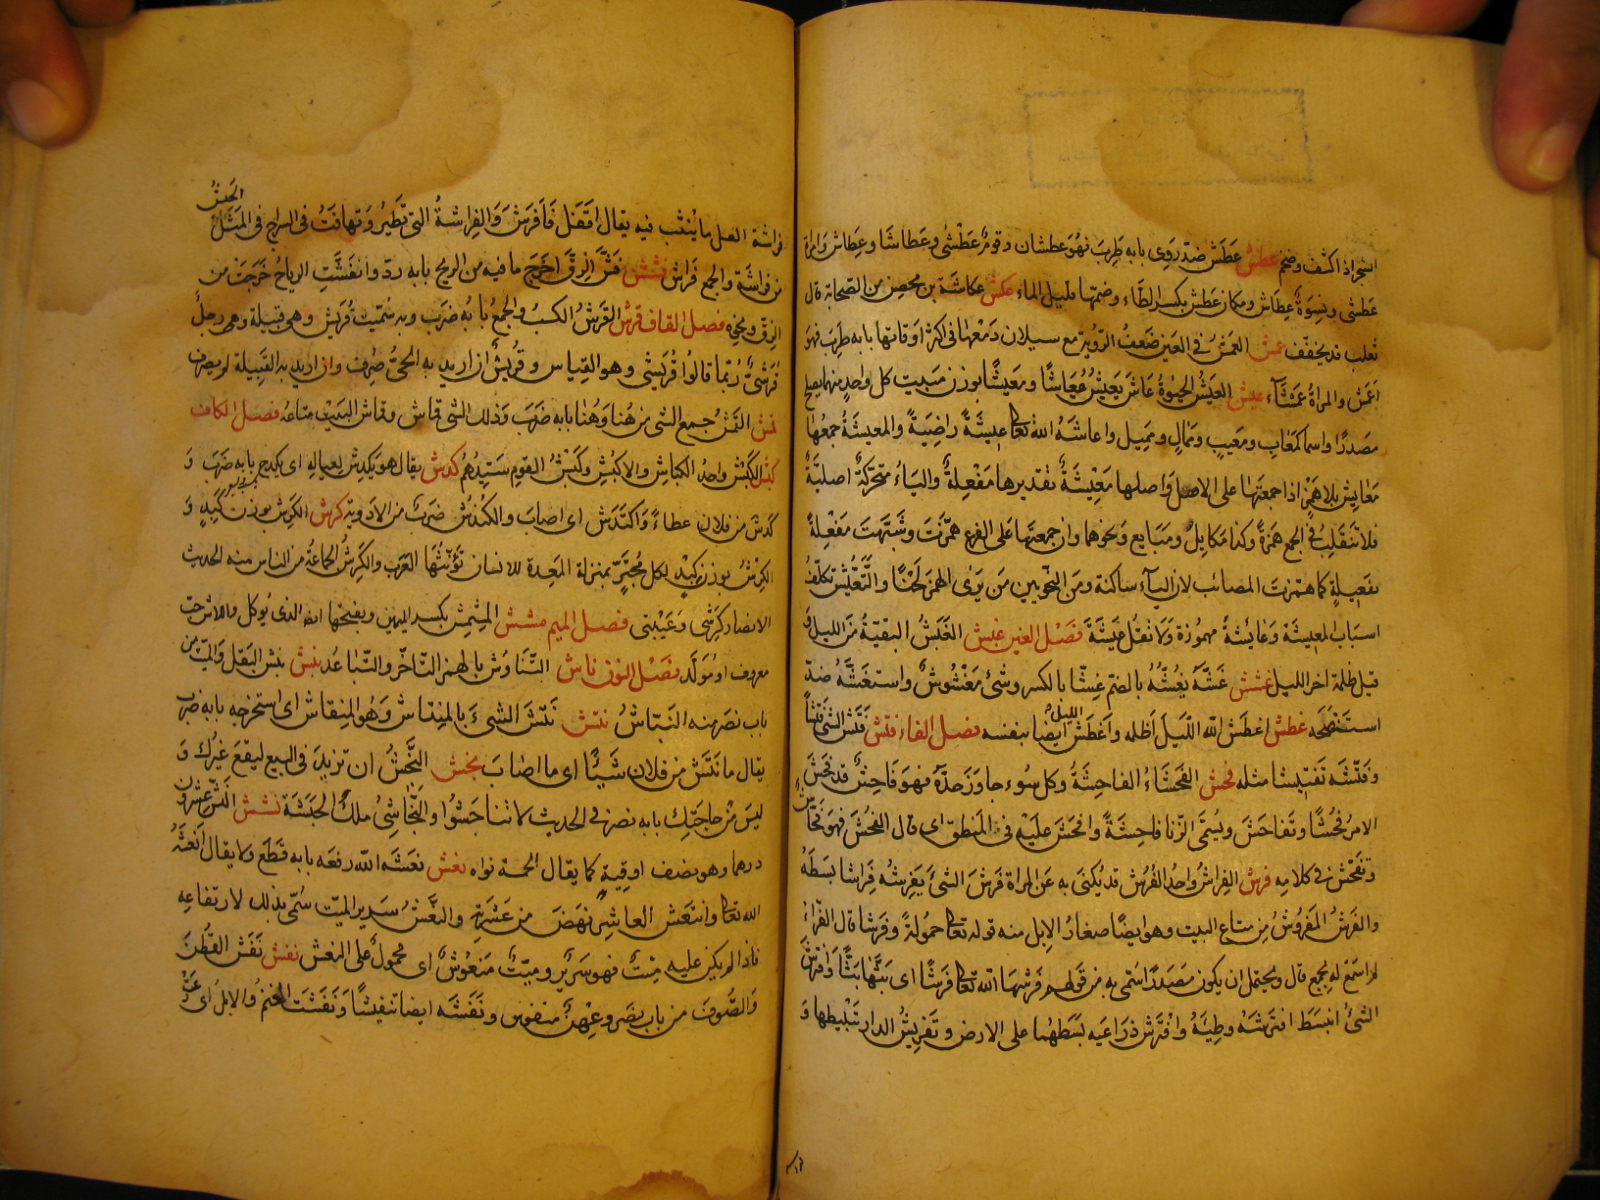 عطش عَطَشَ ضدّ رَوِىَ بابه طَرِبَ فهو عطشان وقومٌ عَطْشٰى وعَطاشا وعِطاش وامرأة
عَطشى ونِسوَةٌ عِطاش ومكان عَطش بكسر الطاء وضمّها قليل الماء عكش عكاشة بن محصن من الصحابة قال
ثعلب قد يخفّف عمش العَمَشُ فى العين ضَعفُ الرّؤية مع سيلان دَمْعِها فى اكثر اوقاتها بابه طَرِبَ فهو
اعمش والمراة عَمشَآء عيش العَيْشُ الحيوةُ عَاشَ يَعيشُ مَعَاشًا ومَعيشًا بوزن مَبيت كل واحدٍ منهما يصلح
مصدرًا واسما كمَعَاب ومَعيب ومَمَال ومَمِيل واعاشَهُ الله تعالى عيشَةً راضِيَةً والمعيشَةُ جمعها
مَعَايش بلا همز اذا جمعتها على الاصل واصلها مَعْيِشَةٌ تقديرها مَفْعِلةٌ والياءُ متحرّكة اصليّة
فلا تنقلبُ فى الجمع همزةً وكذا مَكايل ومَبَايع ونحوهما وان جمعتها على الفرع همزت وشَبّهتَ مَفْعِلةً
بفَعِيلةٍ كما همزت المصائب لان الياء ساكنة ومن النّحويين مَن يَرَى الهمز لَحْنًا والتَّعَيُّش تكلّفُ
اسبَاب المعيشة وعايشة مهموزة ولا تقل عَيشَة فصل الغين غبش الغَبَشُ البقيّة من الليل و
قيل ظلمة اخر الليل غشش غَشّهُ يَغُشّهُ بالضم غِشًّا بالكسر وشئ مَغْشُوش واستغشّهُ ضدّ
استَنصَحه غطش اغطش الله اللّيلَ اظلمه واَغطَشَ الليل ايضا بنفسه فصل الفاء فتش فَتش الشئ فتشًا
وفَتّشَه تفتيشا مثله فحش الفَحشَاءُ الفاحِشَةُ وكل سوء جاوزَ حدّه فهو فَاحِش قد فَحُشَ
الامر فُحْشًا وتَفاحَشَ ويُسمّى الزّنا فاحِشَةً وافحَشَ عليه فى المَنطق اى قال الفُحشَ فهو فَحّاش
وتفحّش فى كلامه فرش الفِراش واحدُ الفُرُش قد يُكنى به عَن المراة فَرَشَ الشئ يفرِشُه فِراشا بسَطَهُ
والفَرش المفروش من متاع البيت وهو ايضًا صغارُ الابل منه قوله تعالى حمولةً وفرشا قال الفرّاءُ
لم اسمَع له بجمع قال ويحتمل ان يكون مصدرًا سُمّى به من قولهم فَرَشَها الله تعالى فَرشًا اى بَثّها بَثًّا وافترَش
الشئ انبسَطَ افترشَهُ وطِيَهُ وافترَش ذراعيه بسَطهُما على الارض وتَفريشُ الدار تبليطها و
فراشة القفل ما يُنشَب فيه يقال اقفَل فَاَفرَشَ والفراشةُ التى تَطيرُ وتهافَتُ فى السراج فى المثل
من فراشة والجمع فَراش فشش فَشَّ الزقَّ اخرَج ما فيه من الريح بابه ردّ وانفشّت الرياحُ خَرَجت من
الزقّ ونحوه فصل القاف قرش القَرشُ الكسب والجمع بابه ضَرَب وبه سُمّيت قُريش وهى قبيلة وهى رجلٌ
قُرَشىّ رُبّما قالوا قُرَيشى وهو القياس وقُريشٌ ان اريد به الحىّ صُرف وان اريد به القبيلة لم يصرف
قمش القَمشُ جمع الشئ من هُنا وهُنا بابه ضَرَب وذلك الشئ قماش وقماش البَيت متاعُه فصل الكاف
كبش الكَبْش واحدُ الكِباش والاكبُش وكَبشُ القوم سَيّدُهُم كدش يقال هو يكدِش لعياله اى يكدح بابه ضَرَبَ وَ
كدشَ من فلان عطاءً واكتَدَش اى اصاب والكُندُشُ ضربٌ من الادوية كرش الكَرِش بوزن كَبِد و
الكِرْشُ بوزن كِبْد لكل مُجترٍّ بمنزلة المَعِدة للانسان تُؤَنّثُها العَرَب والكَرِشُ الجماعَةُ من الناس منه الحديث
الانصار كَرِشى وعَيْبتى فصل الميم مشش المِشمِش بكسر الميمين وبفتحها ايضا الذى يُوكل والماش حبّ
معروف او مُولّد فصل النون ناش التّناوش بالهمز التأخّر والتّباعُد نبش نبش البَقلَ والميّت من
باب نصَر منه النبّاش نتش نَتَشَ الشئ بالمِنتاش وَهُو المِنقاش اى استخرجه بابه ضرب
يقال ما نَتَش من فلان شَيئًا اى ما اصابَ نجش النّجشُ ان تزيدَ فى البيع ليقعَ غيرُك و
ليسَ من حاجتِك بابه نصر فى الحديث لا تناجَشُوا والنّجاشِىُ ملك الحبَشة نشش النَّشّ عشرون
درهما وهو نصف اوقية كما يقال الخمسة نواه نعش نَعَشَه الله رفعَه بابه قَطَعَ ولا يقال اَنعَشَهُ
الله تعالى وانتعَش العاثر نَهَضَ من عَثرته والنَّعش سَرير الميّت سُمّى بذلك لارتفاعِه
فاذا لم يكن عليه مَيّتٌ فهو سَريرٌ وميّتٌ مَنعُوش اى محمولٌ على النعش نفش نَفَش القُطنَ
والصُّوفَ من باب نصَر وعِهنٌ منفوش ونَفّشَه ايضا تنفيشًا ونَفَشَت الغنمُ والابل اى